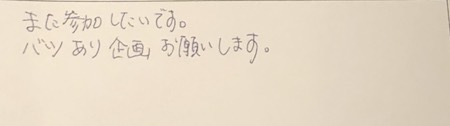 また参加したいです。
バツあり企画お願いします。